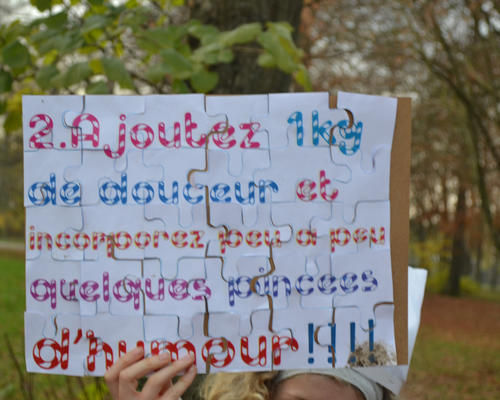 2.Ajoutez 1kg
de douceur et
incorporez peu a peu
quelques pincees
d'humour!!!!